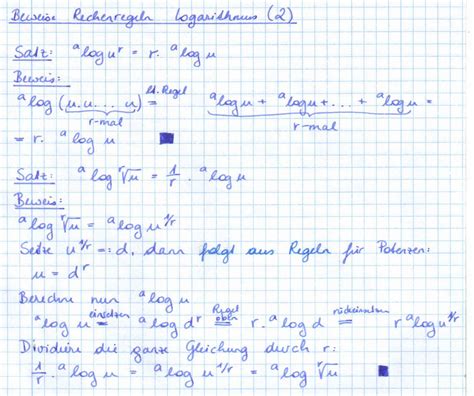 Beweise Rechenregeln Logarithmus (2)
Satz: ᵃlog uʳ = r · ᵃlog u
Beweis:
ᵃlog (u·u·...·u) = ᵃlog u + ᵃlog u + ... + ᵃlog u =
lt. Regel
r-mal r-mal
= r · ᵃlog u ■
Satz: ᵃlog ʳ√u = 1/r · ᵃlog u
Beweis:
ᵃlog ʳ√u = ᵃlog u^1/r
Setze u^1/r =: d, dann folgt aus Regeln für Potenzen:
u = dʳ
Berechne nun ᵃlog u
ᵃlog u = einsetzen ᵃlog dʳ = Regel oben r · ᵃlog d = rückeinsetzen r ᵃlog u^1/r
Dividiere die ganze Gleichung durch r:
1/r · ᵃlog u = ᵃlog u^1/r = ᵃlog ʳ√u ■